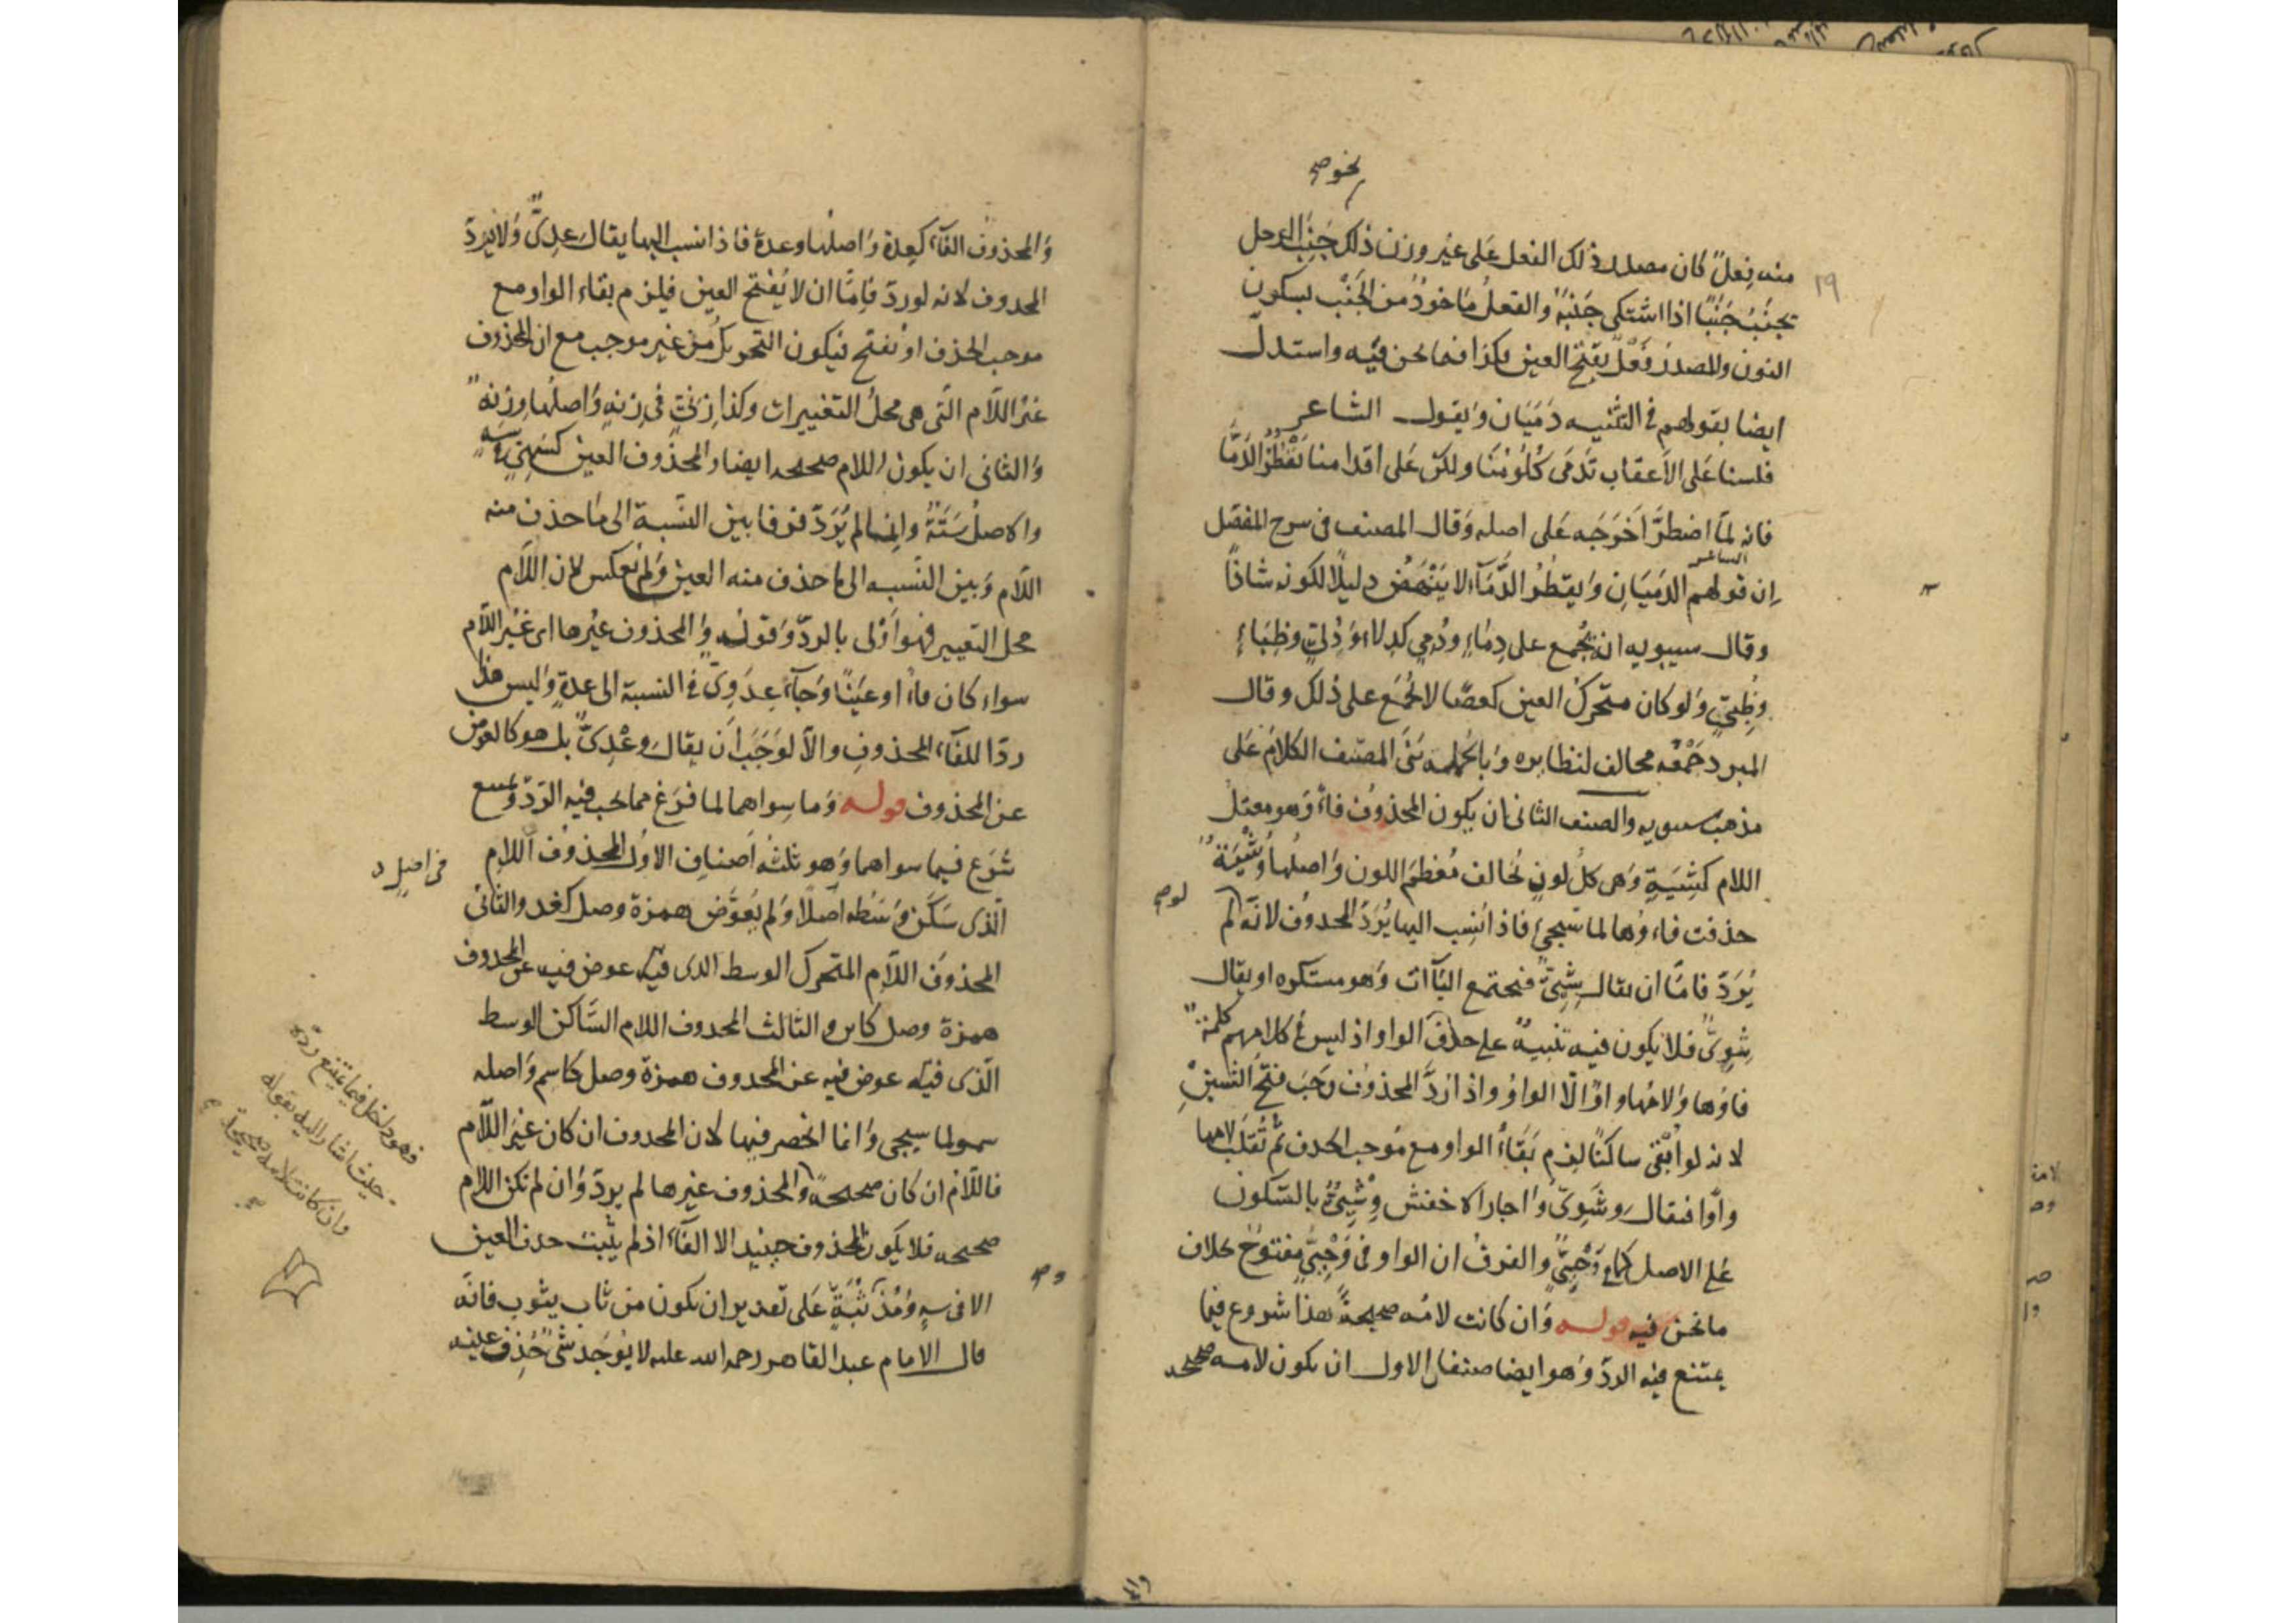 نحو صح
منه فِعلٌ كان مصدر ذلك الفعل على غير وزن ذلك جَنِبَ الرجل
يجنَبُ جَنَبًا اذا اشتكى جَنْبَهُ والفعلُ مأخوذٌ من الجَنْب بسكون
النون والمصدر فَعَلٌ بفتح العين فكذا فيما نحن فيه واستدل
ايضا بقولهم فى التثنيه دَمَيَان وبقول الشاعر
فلسنا على الأعقاب تَدْمَى كُلُومُنَا ولكن على اقدامنا تَقْطُرُ الدَّمَا
فانه لمّا اضطرَّ اَخرَجَه على اصله وقال المصنف فى شرح المفصّل
الشاعر
ان قولهم الدمَيَانِ ويقطُرُ الدَّمَا لا يَنْتَهِضُ دليلًا لكونه شاذًا
وقال سيبويه انه يُجْمع على دِمَاءٍ ودُمِيّ كدِلاءٍ ودُلِيّ وظِبَاءٍ
وظُبِيّ ولو كان متحركَ العين كعصًا لا يُجْمَع على ذلك وقال
المبرد جَمْعُه مخالف لنظايره وبالجملة بَنَى المصنف الكلامَ على
مذهب سيبويه والصنف الثانى ان يكون المحذوف فاءً وهو معتل
اللام كشِيَةٍ وهى كلُّ لونٍ يُخالف مُعْظَمَ اللون واصلُها وِشْيَةٌ
حذفت فاءوها لما سيجئ فاذا نُسِب اليها يُرَدُّ المحذوف لانّه لو لم
لو صح
يُرَدَّ فامّا ان يقال شِيِيٌّ فيجتمع الياآت وهو مستكره او يقال
شِوِيٌّ فلا يكون فيه تنبيهٌ على حذف الواو اذ ليس فى كلامهم كلمةٌ
فاؤها ولامُها واوٌ الّا الواوُ واذا رُدَّ المحذوف وجَبَ فتحُ الشين
لانه لو اُبْقِىَ ساكنًا لزم بَقَاءُ الواو مع مُوجب الحذف ثم تُقلَبُ لامها
واوًا فيقال وِشَوِيٌّ واجاز الاخفش وِشْيِيٌّ بالسكون
على الاصل كما فى وَحْيِيٍّ والفرقُ ان الواو فى وَحْيِيٍّ مفتوحٌ بخلاف
ما نحن فيه قوله وان كانت لامُه صحيحةً هذا شروع فيما
يمتنع فيه الردّ وهو ايضا صنفان الاول ان يكون لامه صحيحه
والمحذوفُ الفَاءَ كعِدةٍ واصلها وِعدةٌ فاذا نسب اليها يقال عِدِيٌّ ولا يُرَدّ
المحذوف لانه لو ردّ فامّا ان لا يُفْتَحَ العين فيلزم بقاء الواو مع
موجب الحذف او يُفتح فيكون التحريكُ من غير موجب مع ان المحذوف
غيرُ اللّام الّتى هى محلُّ التغييرات وكذا زِنِيٌّ فى زِنةٍ واصلُها وِزنَةٌ
والثانى ان يكون اللام صحيحه ايضا والمحذوف العين كسَهِيّ فى سَهٍ
والاصلُ سَتَهٌ وانما لم يُرَدَّ فرقا بين النسبة الى ما حذف منه
اللّام وبين النّسبه الى ما حذف منه العين ولم يُعكس لان اللّام
محل التغيير فهو اَولى بالردّ وقوله والمحذوف غيرها اى غيرُ اللّام
سواء كان فاءً او عينًا وجاء عِدَوِيٌّ فى النسبة الى عدةٍ وليس هذا
ردًّا للفاء المحذوفِ والّا لوَجَبَ اَن يقال وِعْدِيٌّ بل هو كالعوض
عن المحذوف قوله وما سِواهما لما فرغ مما يجب فيه الرّدّ ويمتنع
شرَع فيما سواهما وهو ثلثة اَصنافٍ الاول المحذوفُ اللامِ
فى اصل د
الّذى سَكَنَ وسَطه اصلًا ولم يُعَوَّض همزة وصل كغد والثانى
المحذوفُ اللّامِ المتحرك الوسط الذى فيه عوض فيه عن المحذوف
همزة وصل كابن والثالث المحذوف اللام السّاكن الوسط
الّذى فيه عوض فيه عن المحذوف همزة وصل كاسم واصله
سمو لما سيجى وانما انحصر فيها لان المحذوف ان كان غيرَ اللّام
فاللّام ان كان صحيحةً والمحذوف غيرها لم يردّ وان لم تكن اللام
صحيحه فلا يكون المحذوف حينئذٍ الا الفاء اذ لم يثبت حذف العين
الا فى سهٍ ومُذْ وثُبَةٍ على تقدير ان يكون من ثاب يثوب فانّه
قال الامام عبد القاهر رحمه الله عليه لا يُوجَد شئٌ حُذِف عينه
فهو داخل فيما يمتنع ردّه
حيث اشار اليه بقوله
وان كانت لامه صحيحة